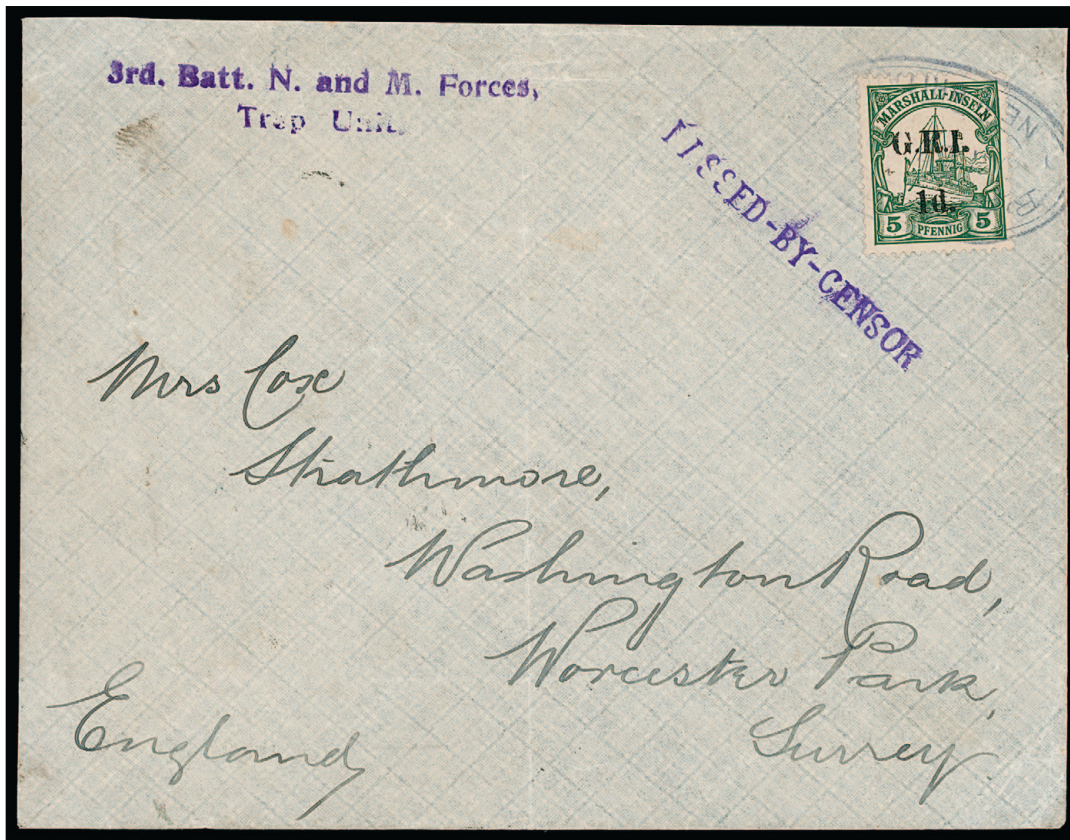 3rd. Batt. N. and M. Forces,
Trop Unit.
PASSED-BY-CENSOR
MARSHALL-INSELN
G.R.I.
1d.
5 PFENNIG 5
Mrs Cox
Strathmore,
Washington Road,
Worcester Park,
Surrey
England